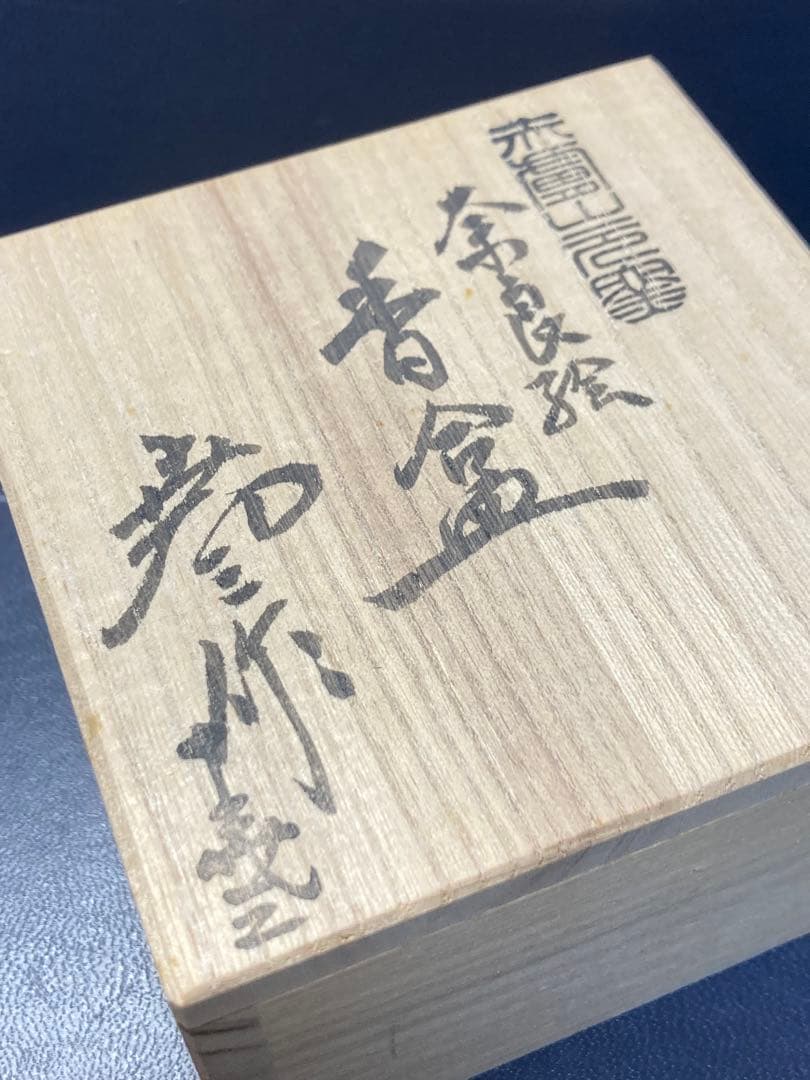 赤膚山元窯
奈良絵
香盒
尭三作